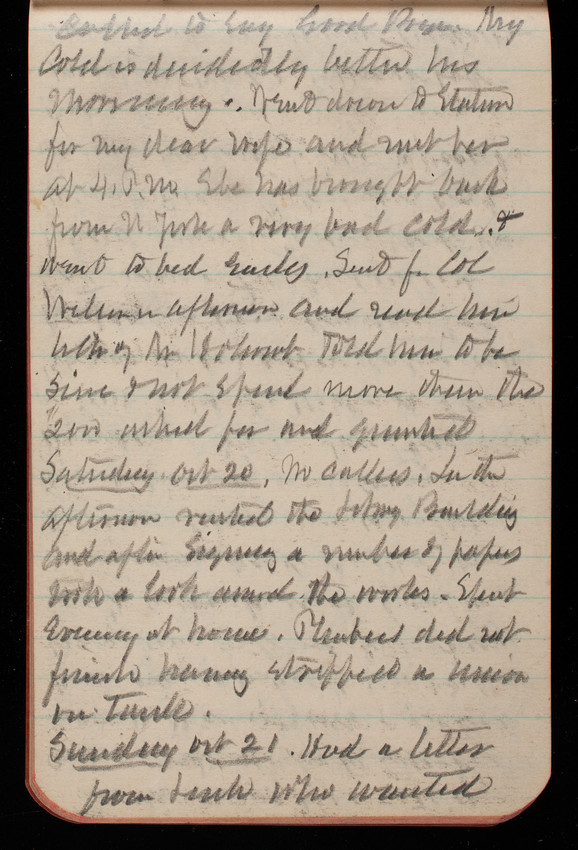 called to say Good Bye. My
Cold is decidedly better this
morning. Went down to Station
for my dear wife and met her
at 4. P.M. She has brought back
from N York a very bad cold. &
went to bed early. Sent for Col
Wilson in afternoon and read him
of Mr told him to be
sure & not spend more than the
200 asked for and granted
Saturday Oct 20. No callers. In the
afternoon visited the Library Building
and after signing a number of papers
took a look around the works. Spent
Evening at home. Plumbers did not
finish having stripped a union
on Tank.
Sunday Oct 21. Had a letter
from who wanted